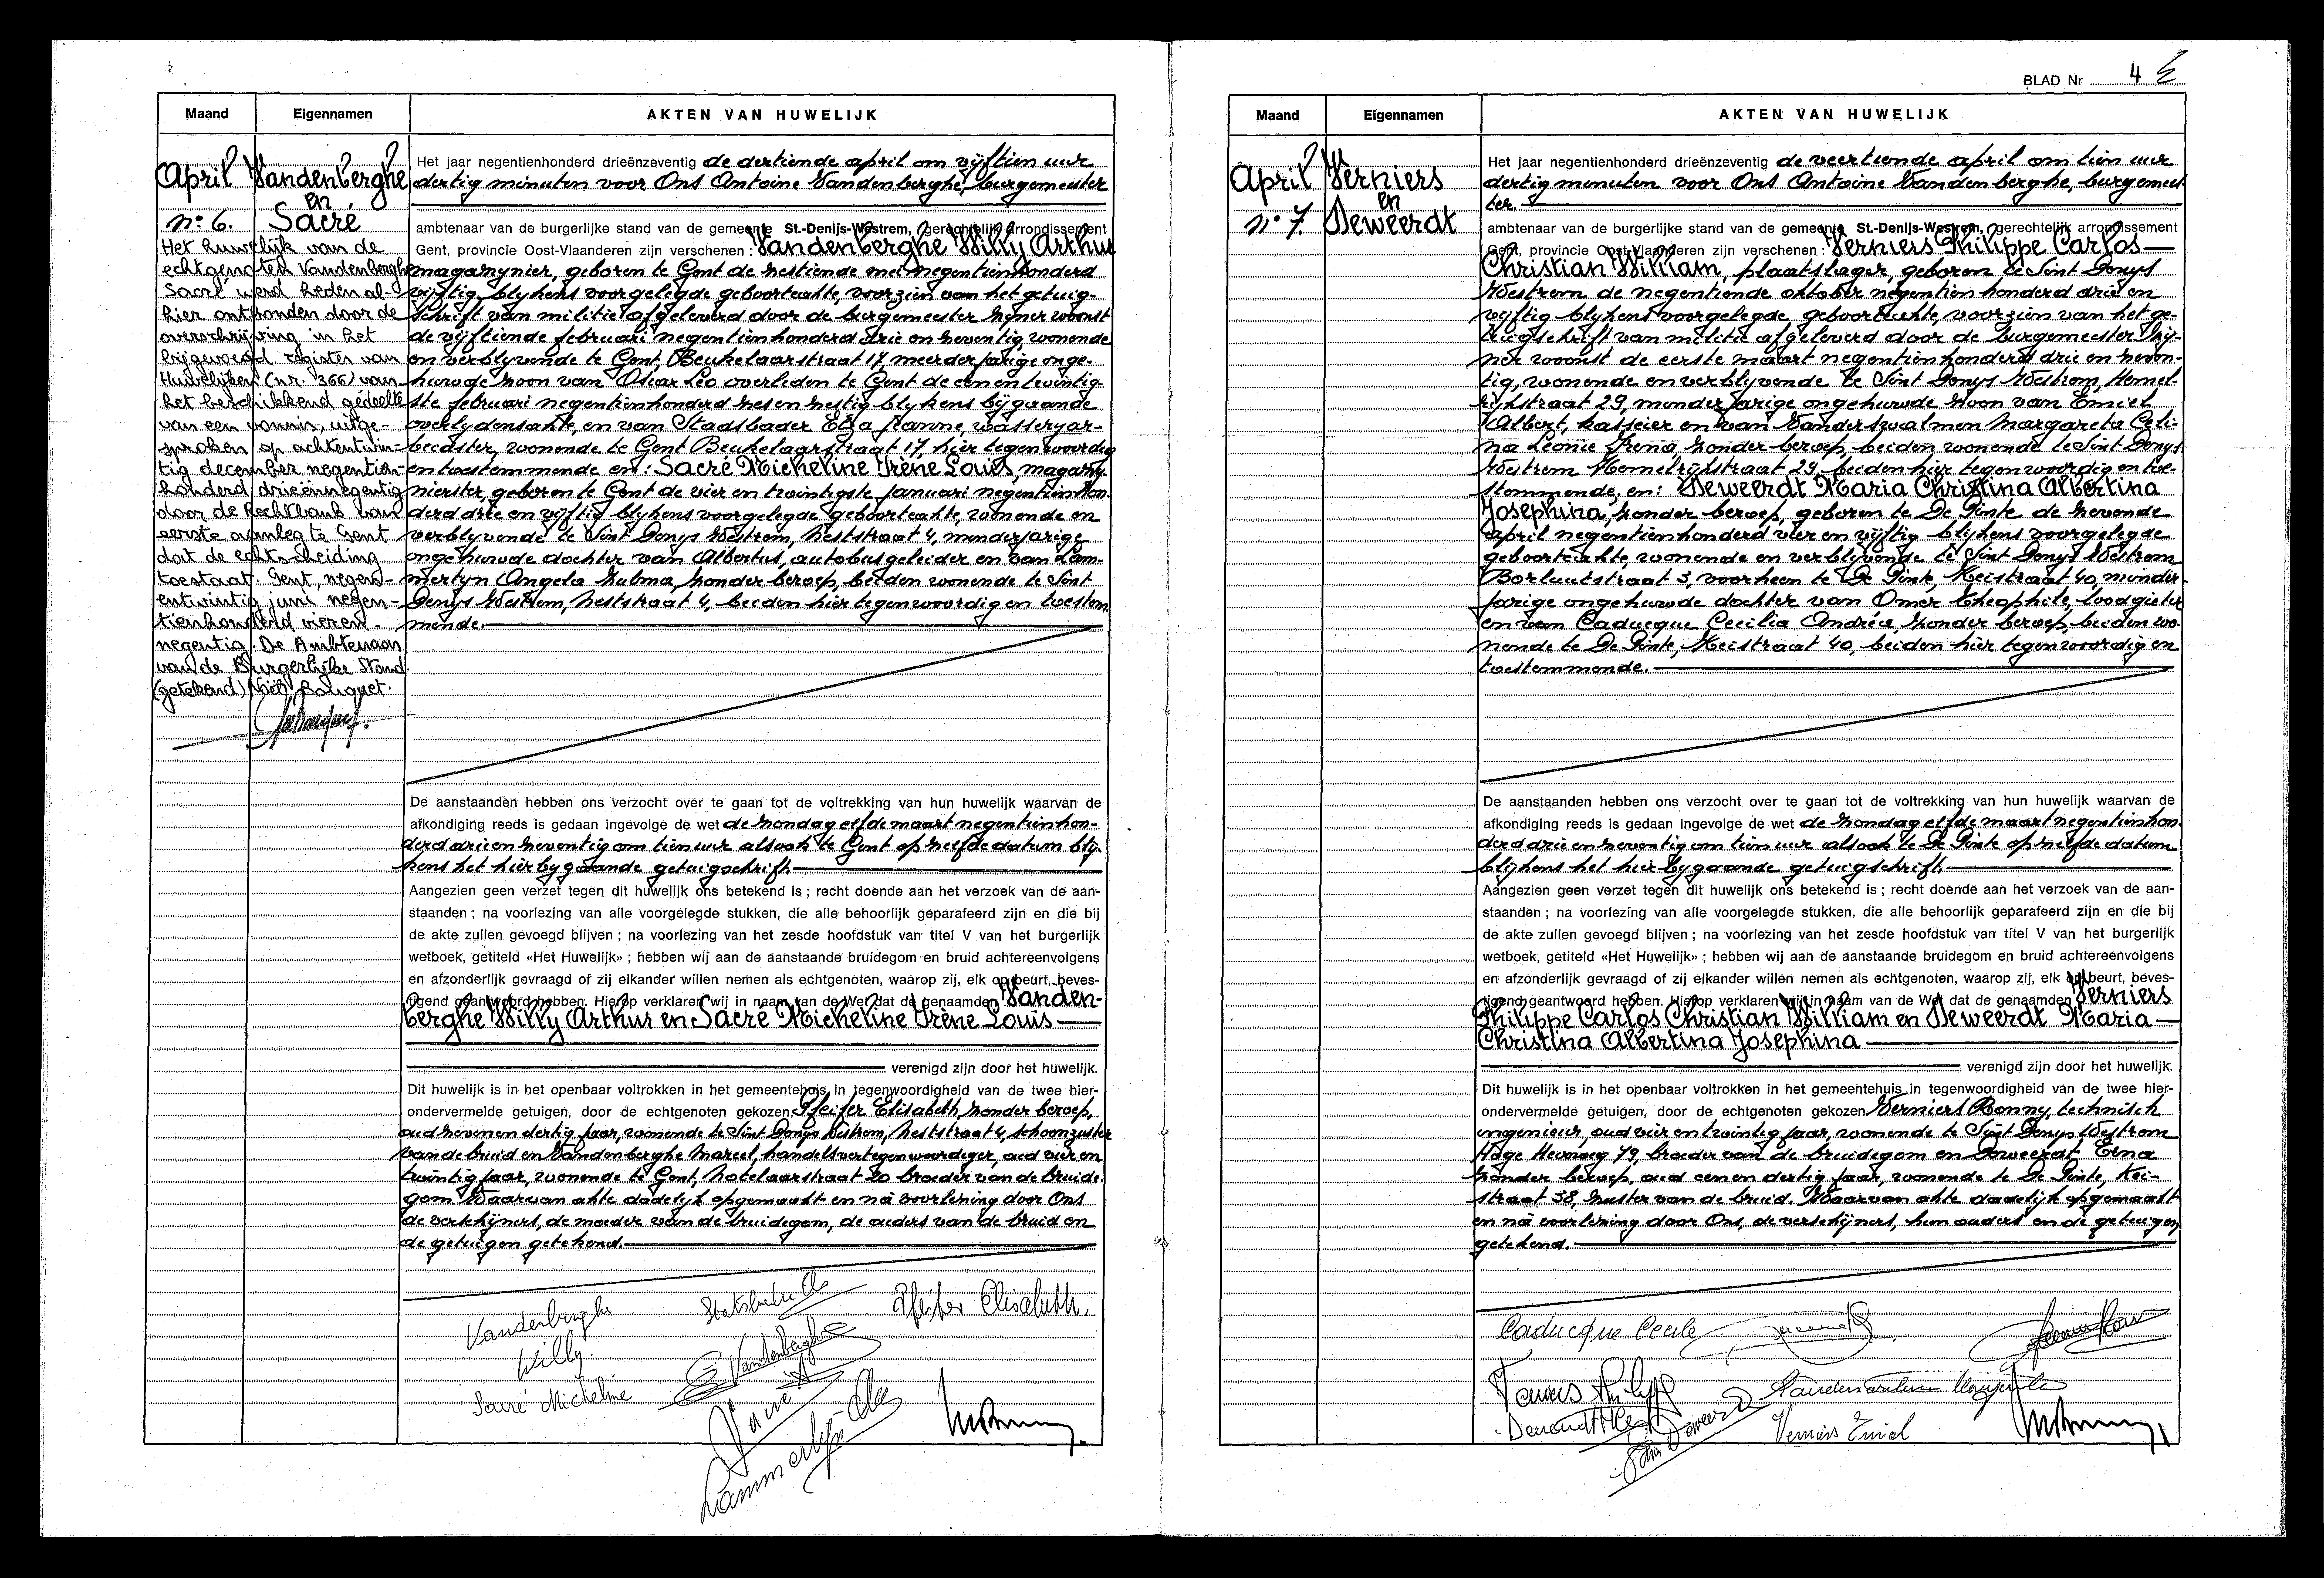 Maand Eigennamen AKTEN VAN HUWELIJK
April
n° 6.
Vandenberghe
en
Sacré
Het huwelijk van de
echtgenoten Vandenberghe
Sacré werd heden al-
hier ontbonden door de
overschrijving in het
bijgevoegd register van
Huwelijken (nr. 366) van
het beschikkend gedeelte
van een vonnis, uitge-
sproken op achtentwin-
tig december negentien-
honderd drieënnegentig
door de Rechtbank van
eerste aanleg te Gent
dat de echtscheiding
toestaat. Gent, negen-
entwintig juni negen-
tienhonderd vieren-
negentig. De Ambtenaar
van de Burgerlijke Stand
(getekend) Noël Bauguet.
Het jaar negentienhonderd drieënzeventig de dertiende april om vijftien uur
dertig minuten voor Ons Antoine Vandenberghe, burgemeester
ambtenaar van de burgerlijke stand van de gemeente St.-Denijs-Westrem, gerechtelijk arrondissement
Gent, provincie Oost-Vlaanderen zijn verschenen : Vandenberghe Willy Arthur
magazynier, geboren te Gent de zestiende mei negentienhonderd
vijftig blykens voorgelegde geboorteakte, voorzien van het getuig-
schrift van militie afgeleverd door de burgemeester zyner woonst
de vijftiende februari negentienhonderd drie en zeventig wonende
en verblyvende te Gent, Beukelaarstraat 17, meerderjarige onge-
huwde zoon van Oscar Leo overleden te Gent de een en twintig-
ste februari negentienhonderd zes en zestig blykens bijgaande
overlydensakte, en van Staadsbader Elza Jeanne, wasseryar-
beidster, wonende te Gent Beukelaarstraat 17, hier tegenwoordig
en toestemmende en: Sacré Micheline Irène Louis, magazy-
nierster, geboren te Gent de vier en twintigste januari negentienhon-
derd drie en vijftig blykens voorgelegde geboorteakte, wonende en
verblyvende te Sint Denys Westrem, Neststraat 4, minderjarige
ongehuwde dochter van Albertus, autobusgeleider en van Lam-
mertyn Angela Zulma, zonder beroep, beiden wonende te Sint
Denys Westrem, Neststraat 4, beiden hier tegenwoordig en toestem-
mende.
De aanstaanden hebben ons verzocht over te gaan tot de voltrekking van hun huwelijk waarvan de
afkondiging reeds is gedaan ingevolge de wet de zondag elfde maart negentienhon-
derd drie en zeventig om tien uur alsook te Gent op zelfde datum bly-
kens het hierbygaande getuigschrift.
Aangezien geen verzet tegen dit huwelijk ons betekend is ; recht doende aan het verzoek van de aan-
staanden ; na voorlezing van alle voorgelegde stukken, die alle behoorlijk geparafeerd zijn en die bij
de akte zullen gevoegd blijven ; na voorlezing van het zesde hoofdstuk van titel V van het burgerlijk
wetboek, getiteld «Het Huwelijk» ; hebben wij aan de aanstaande bruidegom en bruid achtereenvolgens
en afzonderlijk gevraagd of zij elkander willen nemen als echtgenoten, waarop zij, elk op beurt, beves-
tigend geantwoord hebben. Hierop verklaren wij in naam van de Wet dat de genaamden Vanden-
berghe Willy Arthur en Sacré Micheline Irène Louis
verenigd zijn door het huwelijk.
Dit huwelijk is in het openbaar voltrokken in het gemeentehuis in tegenwoordigheid van de twee hier-
ondervermelde getuigen, door de echtgenoten gekozen Pfeifer Elisabeth, zonder beroep,
oud zeven en dertig jaar, wonende te Sint Denys Westrem, Neststraat 4, schoonzuster
van de bruid en Vandenberghe Marcel, handelsvertegenwoordiger, oud vier en
twintig jaar, wonende te Gent, Notelaarstraat 20 broeder van de bruide-
gom. Waarvan akte dadelyk opgemaakt en na voorlezing door Ons
de verschijners, de moeder van de bruidegom, de ouders van de bruid en
de getuigen getekend.
Vandenberghe Willy.
Pfeifer Elisabeth.
Vandenberghe
Sacré Micheline
Lammertyn
BLAD Nr 4
Maand Eigennamen AKTEN VAN HUWELIJK
April
n° 7.
Verniers
en
Deweerdt
Het jaar negentienhonderd drieënzeventig de veertiende april om tien uur
dertig minuten voor Ons Antoine Vandenberghe, burgemees-
ter
ambtenaar van de burgerlijke stand van de gemeente St.-Denijs-Westrem, gerechtelijk arrondissement
Gent, provincie Oost-Vlaanderen zijn verschenen : Verniers Philippe Carlos
Christian William, plaatslager, geboren te Sint Denys
Westrem de negentiende oktober negentienhonderd drie en
vijftig blykens voorgelegde geboorteakte, voorzien van het ge-
tuigschrift van militie afgeleverd door de burgemeester zij-
ner woonst de eerste maart negentienhonderd drie en zeven-
tig, wonende en verblyvende te Sint Denys Westrem, Hemel-
rijkstraat 29, minderjarige ongehuwde zoon van Emiel
Albert, kasseier en van Vanderswalmen Margareta Celi-
na Leonie Irena, zonder beroep, beiden wonende te Sint Denys
Westrem Hemelrijkstraat 29, beiden hier tegenwoordig en toe-
stemmende, en: Deweerdt Maria Christina Albertina
Josephina, zonder beroep, geboren te De Pinte de zevende
april negentienhonderd vier en vijftig blykens voorgelegde
geboorteakte, wonende en verblyvende te Sint Denys Westrem
Borluutstraat 3, voorheen te De Pinte, Keistraat 40, minder-
jarige ongehuwde dochter van Omer Theophile, loodgieter
en van Caducque Cecilia Andréa, zonder beroep, beiden wo-
nende te De Pinte, Keistraat 40, beiden hier tegenwoordig en
toestemmende.
De aanstaanden hebben ons verzocht over te gaan tot de voltrekking van hun huwelijk waarvan de
afkondiging reeds is gedaan ingevolge de wet de zondag elfde maart negentienhon-
derd drie en zeventig om tien uur alsook te De Pinte op zelfde datum
blijkens het hierbygaande getuigschrift.
Aangezien geen verzet tegen dit huwelijk ons betekend is ; recht doende aan het verzoek van de aan-
staanden ; na voorlezing van alle voorgelegde stukken, die alle behoorlijk geparafeerd zijn en die bij
de akte zullen gevoegd blijven ; na voorlezing van het zesde hoofdstuk van titel V van het burgerlijk
wetboek, getiteld «Het Huwelijk» ; hebben wij aan de aanstaande bruidegom en bruid achtereenvolgens
en afzonderlijk gevraagd of zij elkander willen nemen als echtgenoten, waarop zij, elk op beurt, beves-
tigend geantwoord hebben. Hierop verklaren wij in naam van de Wet dat de genaamden Verniers
Philippe Carlos Christian William en Deweerdt Maria
Christina Albertina Josephina
verenigd zijn door het huwelijk.
Dit huwelijk is in het openbaar voltrokken in het gemeentehuis in tegenwoordigheid van de twee hier-
ondervermelde getuigen, door de echtgenoten gekozen Verniers Ronny, technisch
ingenieur, oud vier en twintig jaar, wonende te Sint Denys Westrem
Hoge Heirweg 79, broeder van de bruidegom en Deweerdt Erna
zonder beroep, oud een en dertig jaar, wonende te De Pinte, Kei-
straat 38, zuster van de bruid. Waarvan akte dadelijk opgemaakt
en na voorlezing door Ons, de verschijners, hun ouders en de getuigen
getekend.
Caducque Cecile
Verniers Emiel